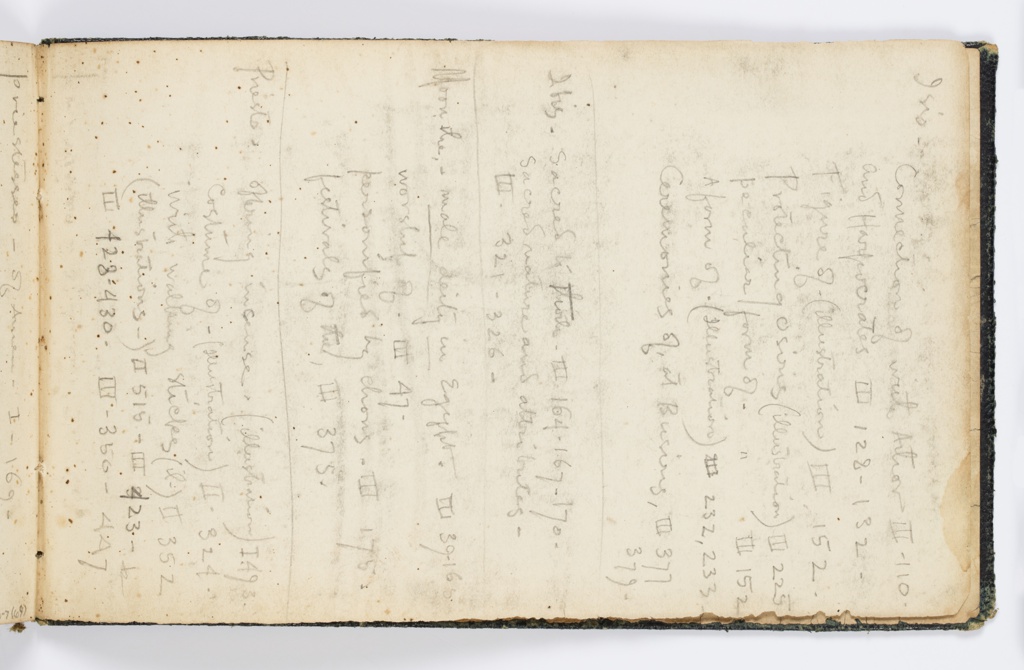 Isis -
Connection of with Athor - III - 110.
and Harpocrates III 128 - 132 -
Figure of (illustration) III 152.
Protecting Osiris (illustration) III 225
peculiar form of - " III 152
A form of. (illustration) III 232, 233
Ceremonies of, at Busiris, III 377
379.
Ibis. Sacred to Thoth III, 164-167-170.
Sacred nature and attributes -
III. 321 - 326 -
Moon the, - male deity in Egypt. III 39-165
worship of. III 47.
personified by Chons - III 175.
festivals of the, III 375.
Priests. offering incense. (illustration) I 493.
Costume of - (illustration) II - 324.
with walking sticks (ill.) II 352
(illustrations -) II 515 - III 423 - to
III 428-430 - III - 350 - 447
priestesses - of - I - 169 -